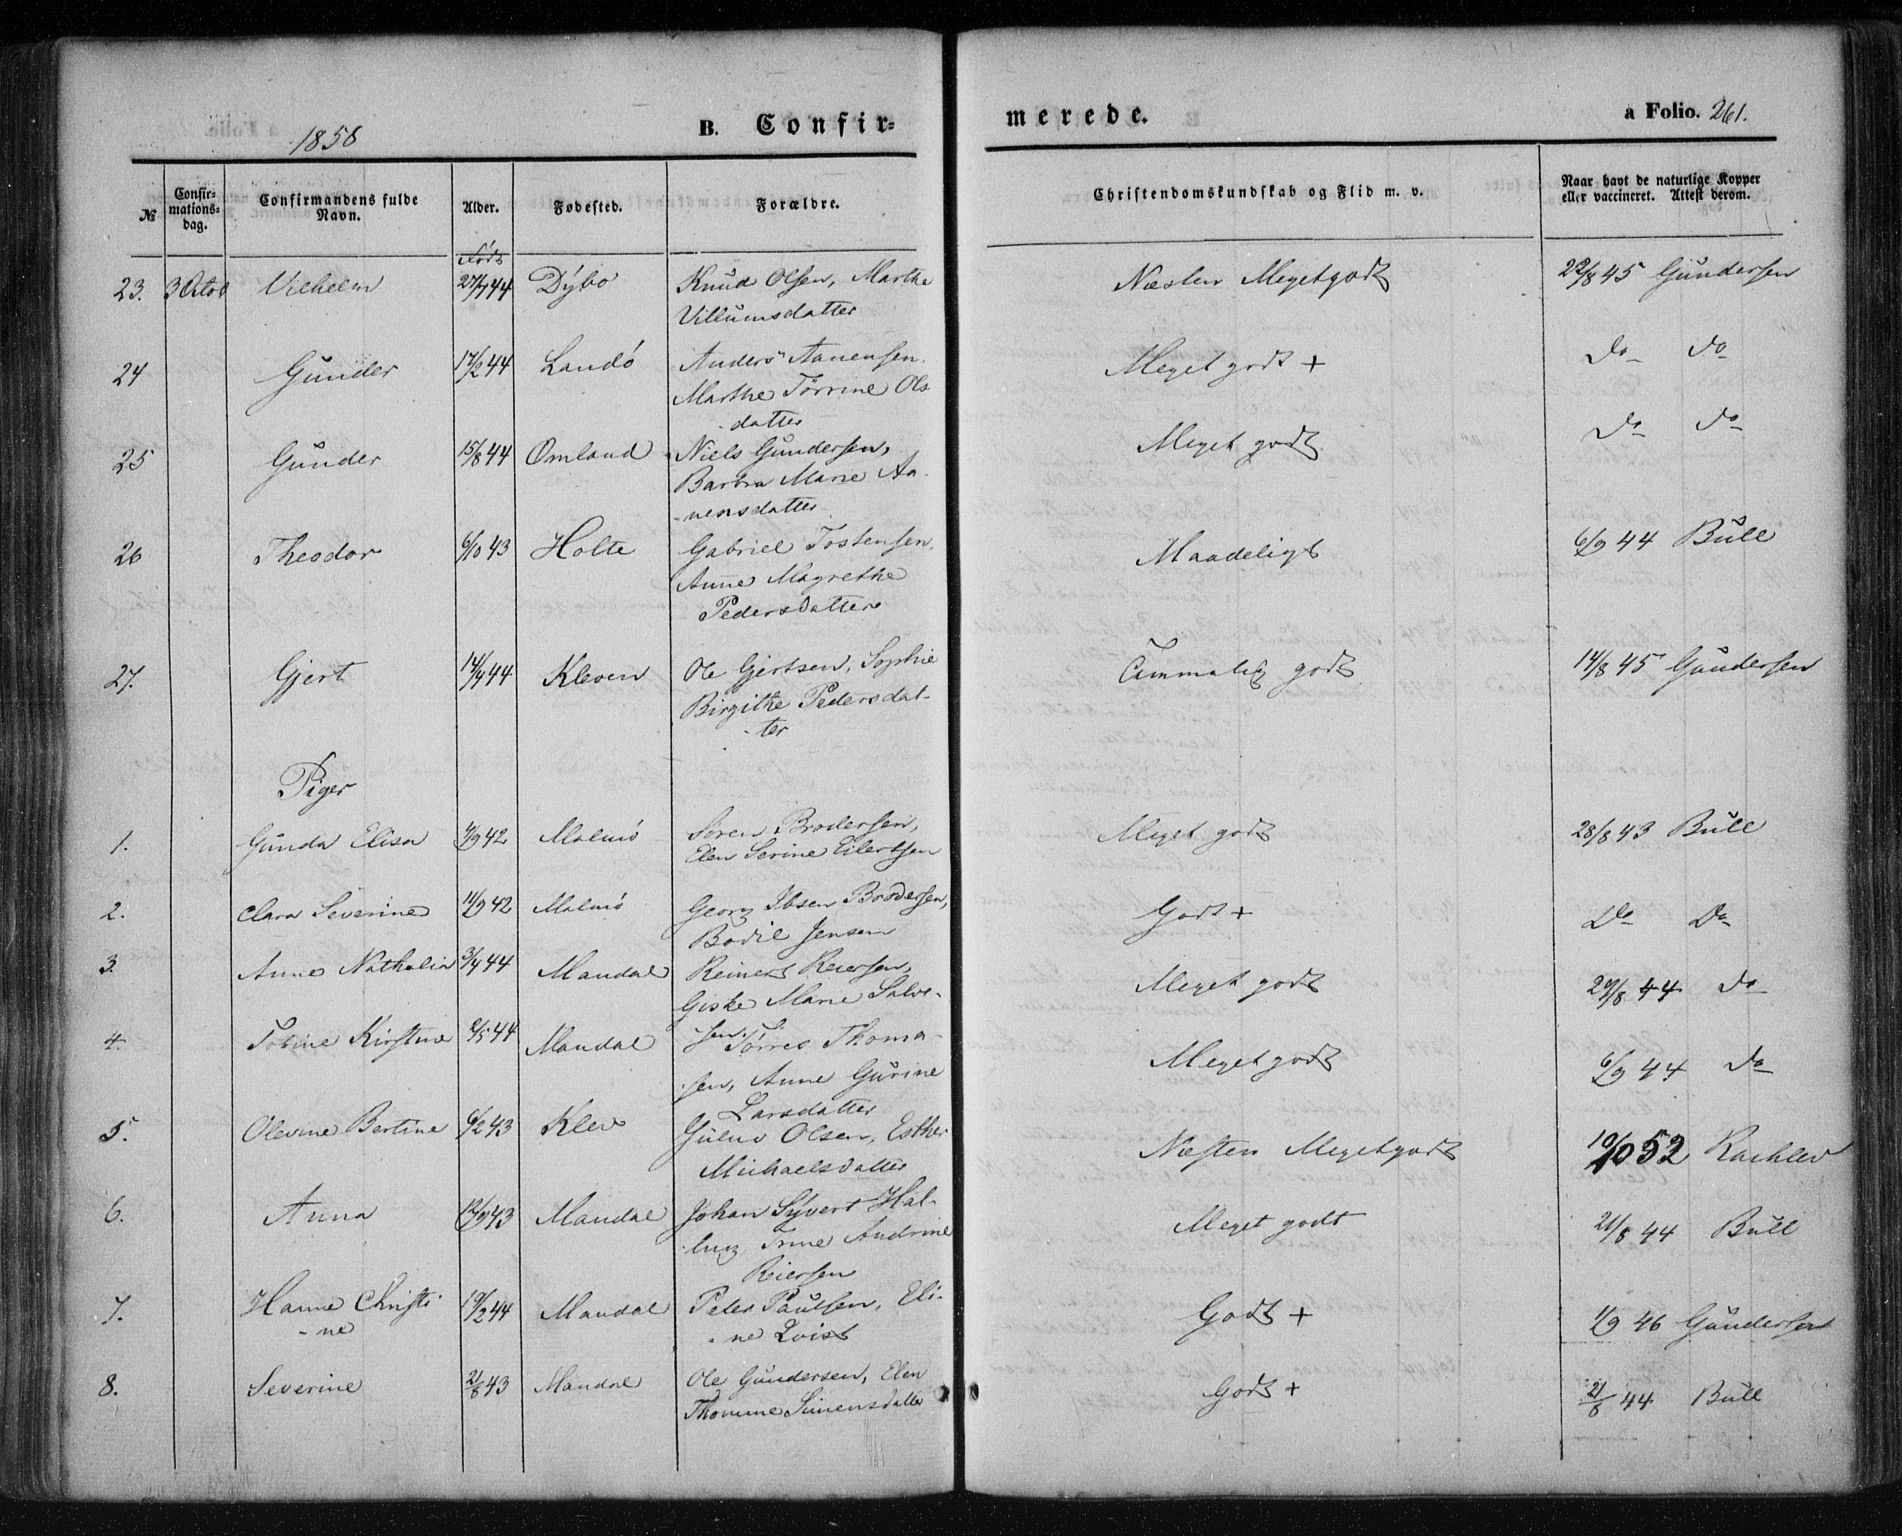 1858 B. Confir= merede. a Folio. 261.
№ Confir=mations=dag. Confirmandens fulde Navn. Alder. Fødested. Forældre. Christendomskundskab og Flid m. v. Naar havt de naturlige Kopper eller vaccineret. Attest derom.
Født
23. 3 Octob Vilhelm 27/7 44 Dybo Knud Olsen, Marthe Næsten Megetgodt 22/8 45 Gundersen
Villumsdatter
24 Gunder 17/2 44 Landö Anders Aanensen. Meget godt + Do Do
Marthe Tørrine Ols
-datter
25 Gunder 15/8 44 Omland Niels Gundersen, Meget godt Do Do
Barbra Marie Aa-
-nensdatter
26 Theodor 6/10 43 Holte Gabriel Tostensen, Maadeligt 6/9 44 Bull
Anne Magrethe
Pedersdatter
27. Gjert 14/4 44 Kleven Ole Gjertsen, Sophie Tammelig godt 14/8 45 Gundersen
Birgithe Pedersdat-
-ter
Piger
1. Gunda Elisa 4/9 42 Malmö Søren Brodersen, Meget godt 28/8 43 Bull
Elen Serine Eilertsen
2. Clara Severine 11/9 42 Malmö Georg Ibsen Brodersen, Godt + Do Do
Bodil Jensen
3. Anne Nathalia 3/4 44 Mandal Reinert Reiersen, Meget godt 29/8 44 Do
Giske Marie Salve-
4. Tobine Kirstine 2/5 44 Mandal sen. Tørres Thoma- Meget godt 6/9 44 Do
sen, Anne Gurine
Larsdatter
5. Olevine Bertine 9/2 43 Klev Julius Olsen, Esther Næsten Megetgodt 10/10 52
Michaelsdatter
6. Anna 12/9 43 Mandal Johan Syvert Hal- Meget godt 21/8 44 Bull
Trine Andrine
Reiersen
7. Hanne Christi 19/2 44 Mandal Peter Paulsen, Eli- Godt + 1/9 46 Gundersen
-ne -ne Qvist
8. Severine 21/8 43 Mandal Ole Gundersen, Elen Godt + 21/8 44 Bull
Thomine Simensdatter